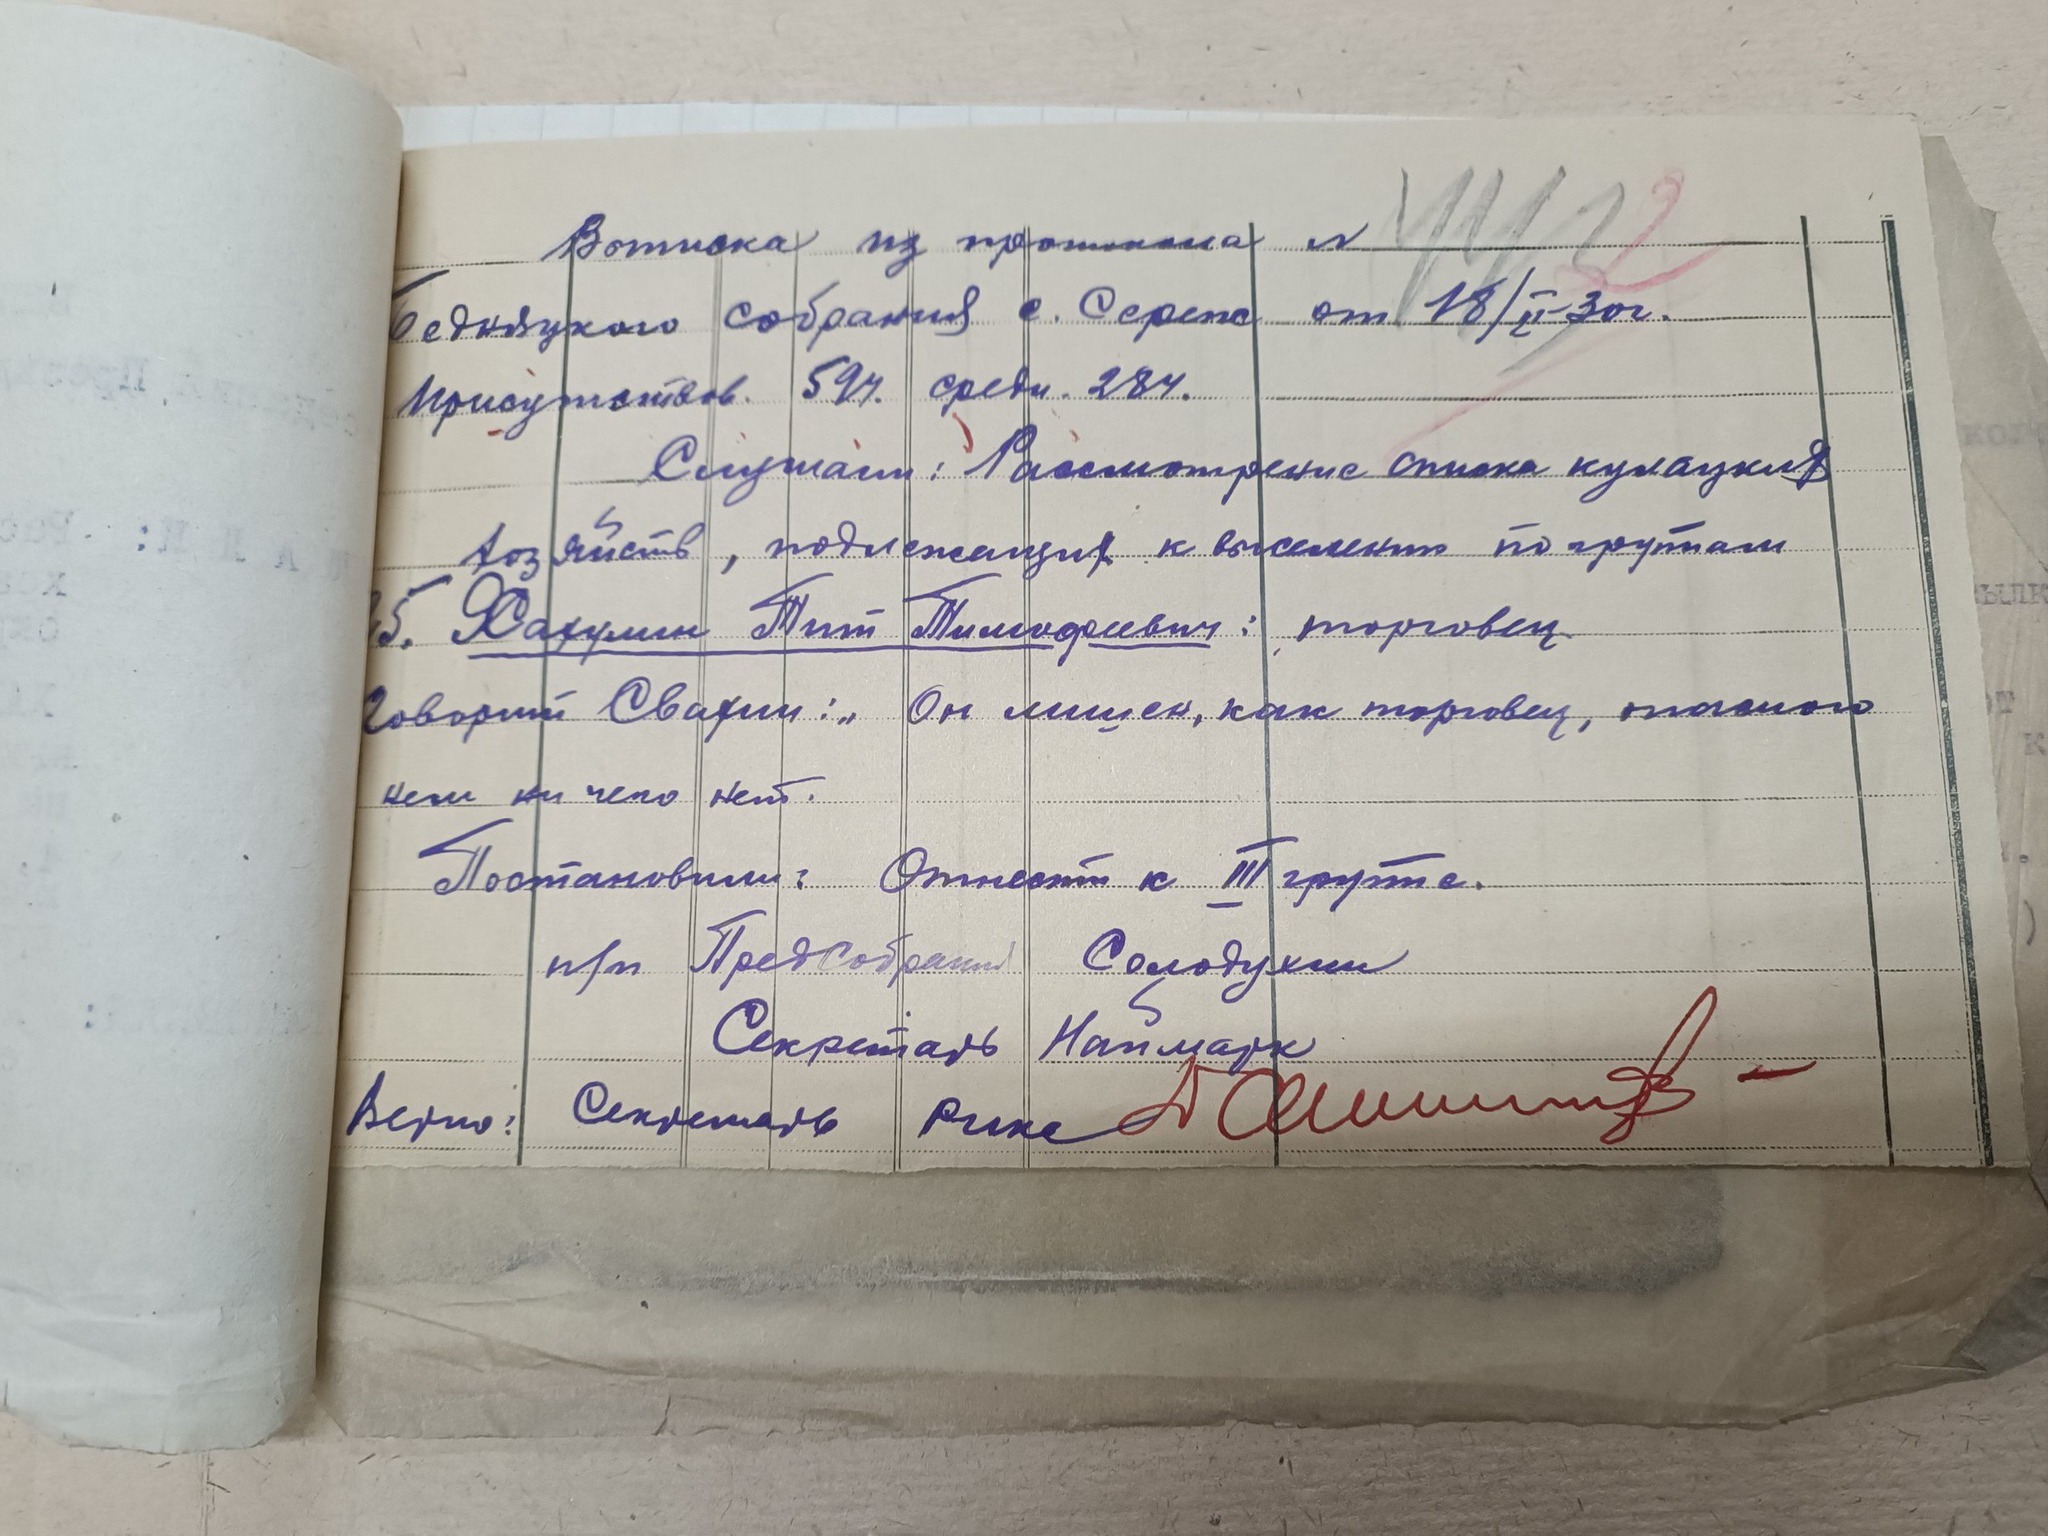 Выписка из протокола №
Бедняцкого собрания с. Серета от 18/II-30г.
Присутствов. 59ч. средн. 28ч.
Слушали: Рассмотрение списка кулацких
хозяйств, подлежащих к выселению по группам
Хахулин Тит Тимофеевич: торговец
Говорит Свахин: „Он лишен, как торговец, опасного
нем ни чего нет.
Постановили: Отнести к III группе.
п/п ПредСобрания Солодухин
Секретарь Наймарк
Верно: Секретарь Рика